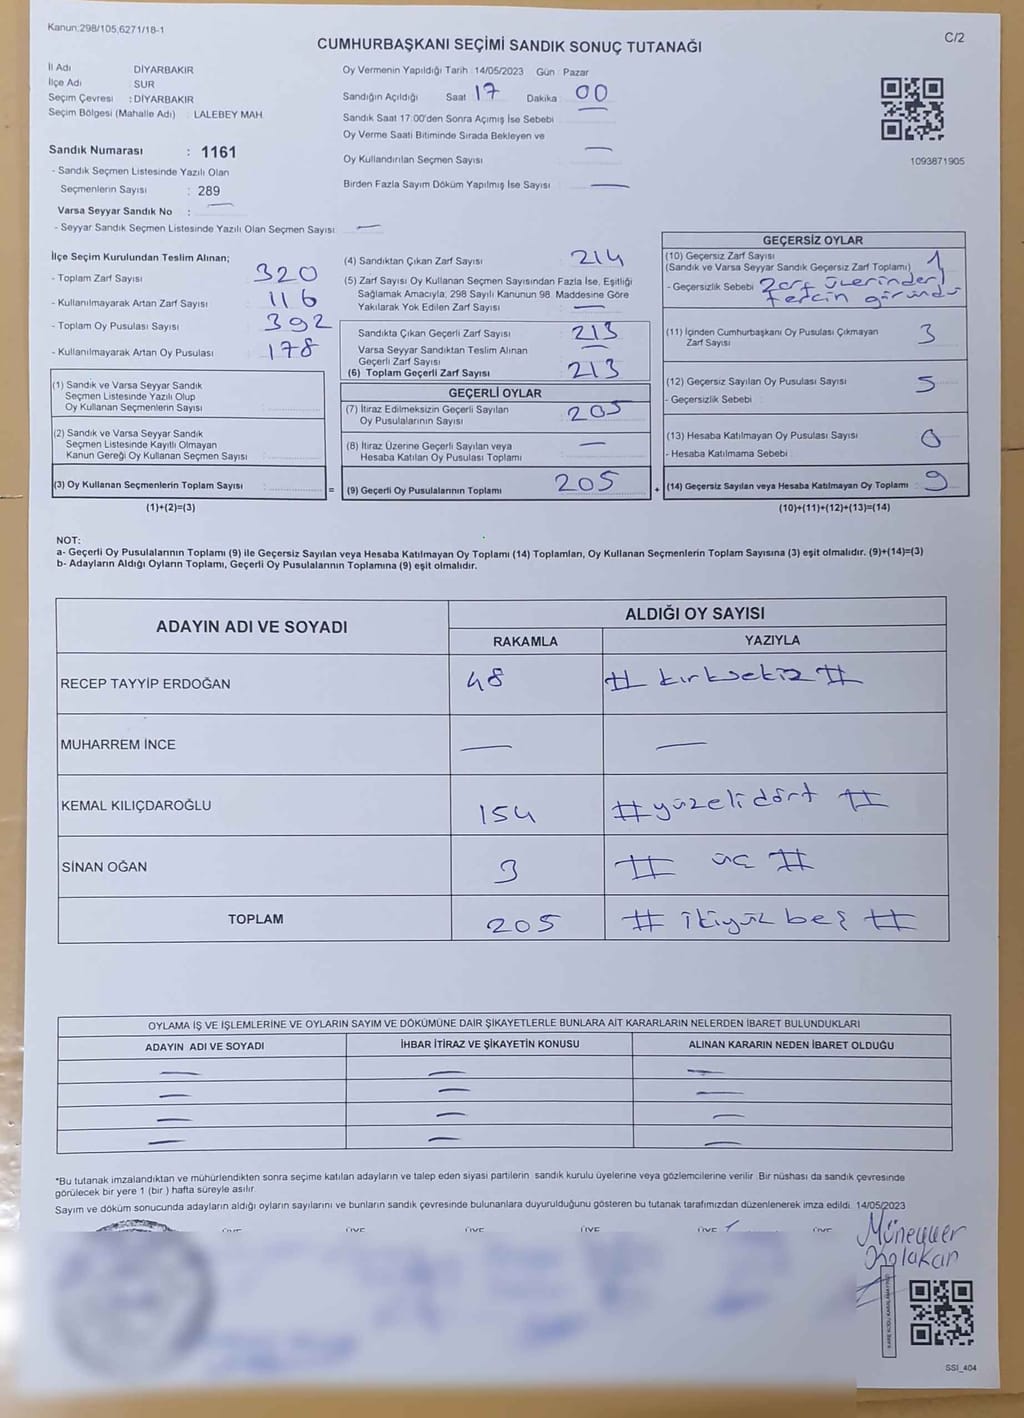 Kanun:298/105,6271/18-1
C/2
CUMHURBAŞKANI SEÇİMİ SANDIK SONUÇ TUTANAĞI
İl Adı DİYARBAKIR
İlçe Adı SUR
Seçim Çevresi : DİYARBAKIR
Seçim Bölgesi (Mahalle Adı) : LALEBEY MAH.
Sandık Numarası : 1161
- Sandık Seçmen Listesinde Yazılı Olan
Seçmenlerin Sayısı : 289
Varsa Seyyar Sandık No : —
- Seyyar Sandık Seçmen Listesinde Yazılı Olan Seçmen Sayısı —
Oy Vermenin Yapıldığı Tarih : 14/05/2023 Gün Pazar
Sandığın Açıldığı Saat 17 Dakika 00
Sandık Saat 17.00'den Sonra Açımış İse Sebebi
Oy Verme Saati Bitiminde Sırada Bekleyen ve
Oy Kullandırılan Seçmen Sayısı —
Birden Fazla Sayım Döküm Yapılmış İse Sayısı —
1093871905
İlçe Seçim Kurulundan Teslim Alınan;
- Toplam Zarf Sayısı 320
- Kullanılmayarak Artan Zarf Sayısı 116
- Toplam Oy Pusulası Sayısı 392
- Kullanılmayarak Artan Oy Pusulası 178
(1) Sandık ve Varsa Seyyar Sandık
Seçmen Listesinde Yazılı Olup
Oy Kullanan Seçmenlerin Sayısı :
(2) Sandık ve Varsa Seyyar Sandık
Seçmen Listesinde Kayıtlı Olmayan
Kanun Gereği Oy Kullanan Seçmen Sayısı :
(3) Oy Kullanan Seçmenlerin Toplam Sayısı :
(1)+(2)=(3)
(4) Sandıktan Çıkan Zarf Sayısı 214
(5) Zarf Sayısı Oy Kullanan Seçmen Sayısından Fazla İse, Eşitliği
Sağlamak Amacıyla; 298 Sayılı Kanunun 98. Maddesine Göre
Yakılarak Yok Edilen Zarf Sayısı —
Sandıkta Çıkan Geçerli Zarf Sayısı 213
Varsa Seyyar Sandıktan Teslim Alınan
Geçerli Zarf Sayısı —
(6) Toplam Geçerli Zarf Sayısı 213
GEÇERLİ OYLAR
(7) İtiraz Edilmeksizin Geçerli Sayılan
Oy Pusulalarının Sayısı 205
(8) İtiraz Üzerine Geçerli Sayılan veya
Hesaba Katılan Oy Pusulası Toplamı —
= (9) Geçerli Oy Pusulalarının Toplamı 205
GEÇERSİZ OYLAR
(10) Geçersiz Zarf Sayısı 1
(Sandık ve Varsa Seyyar Sandık Geçersiz Zarf Toplamı)
- Geçersizlik Sebebi : Zarf üzerinden
tercih göründü
(11) İçinden Cumhurbaşkanı Oy Pusulası Çıkmayan
Zarf Sayısı 3
(12) Geçersiz Sayılan Oy Pusulası Sayısı 5
- Geçersizlik Sebebi :
(13) Hesaba Katılmayan Oy Pusulası Sayısı 0
- Hesaba Katılmama Sebebi :
+ (14) Geçersiz Sayılan veya Hesaba Katılmayan Oy Toplamı : 9
(10)+(11)+(12)+(13)=(14)
NOT:
a- Geçerli Oy Pusulalarının Toplamı (9) ile Geçersiz Sayılan veya Hesaba Katılmayan Oy Toplamı (14) Toplamları, Oy Kullanan Seçmenlerin Toplam Sayısına (3) eşit olmalıdır. (9)+(14)=(3)
b- Adayların Aldığı Oyların Toplamı, Geçerli Oy Pusulalarının Toplamına (9) eşit olmalıdır.
ADAYIN ADI VE SOYADI ALDIĞI OY SAYISI
RAKAMLA YAZIYLA
RECEP TAYYİP ERDOĞAN 48 # kırksekiz #
MUHARREM İNCE — —
KEMAL KILIÇDAROĞLU 154 # yüzelidört #
SİNAN OĞAN 3 # üç #
TOPLAM 205 # ikiyüz beş #
OYLAMA İŞ VE İŞLEMLERİNE VE OYLARIN SAYIM VE DÖKÜMÜNE DAİR ŞİKAYETLERLE BUNLARA AİT KARARLARIN NELERDEN İBARET BULUNDUKLARI
ADAYIN ADI VE SOYADI İHBAR İTİRAZ VE ŞİKAYETİN KONUSU ALINAN KARARIN NEDEN İBARET OLDUĞU
— — —
— — —
— — —
— — —
*Bu tutanak imzalandıktan ve mühürlendikten sonra seçime katılan adayların ve talep eden siyasi partilerin sandık kurulu üyelerine veya gözlemcilerine verilir. Bir nüshası da sandık çevresinde
görülecek bir yere 1 (bir ) hafta süreyle asılır.
Sayım ve döküm sonucunda adayların aldığı oyların sayılarını ve bunların sandık çevresinde bulunanlara duyurulduğunu gösteren bu tutanak tarafımızdan düzenlenerek imza edildi. 14/05/2023
ÜYE ÜYE ÜYE ÜYE ÜYE ÜYE
SSI_404